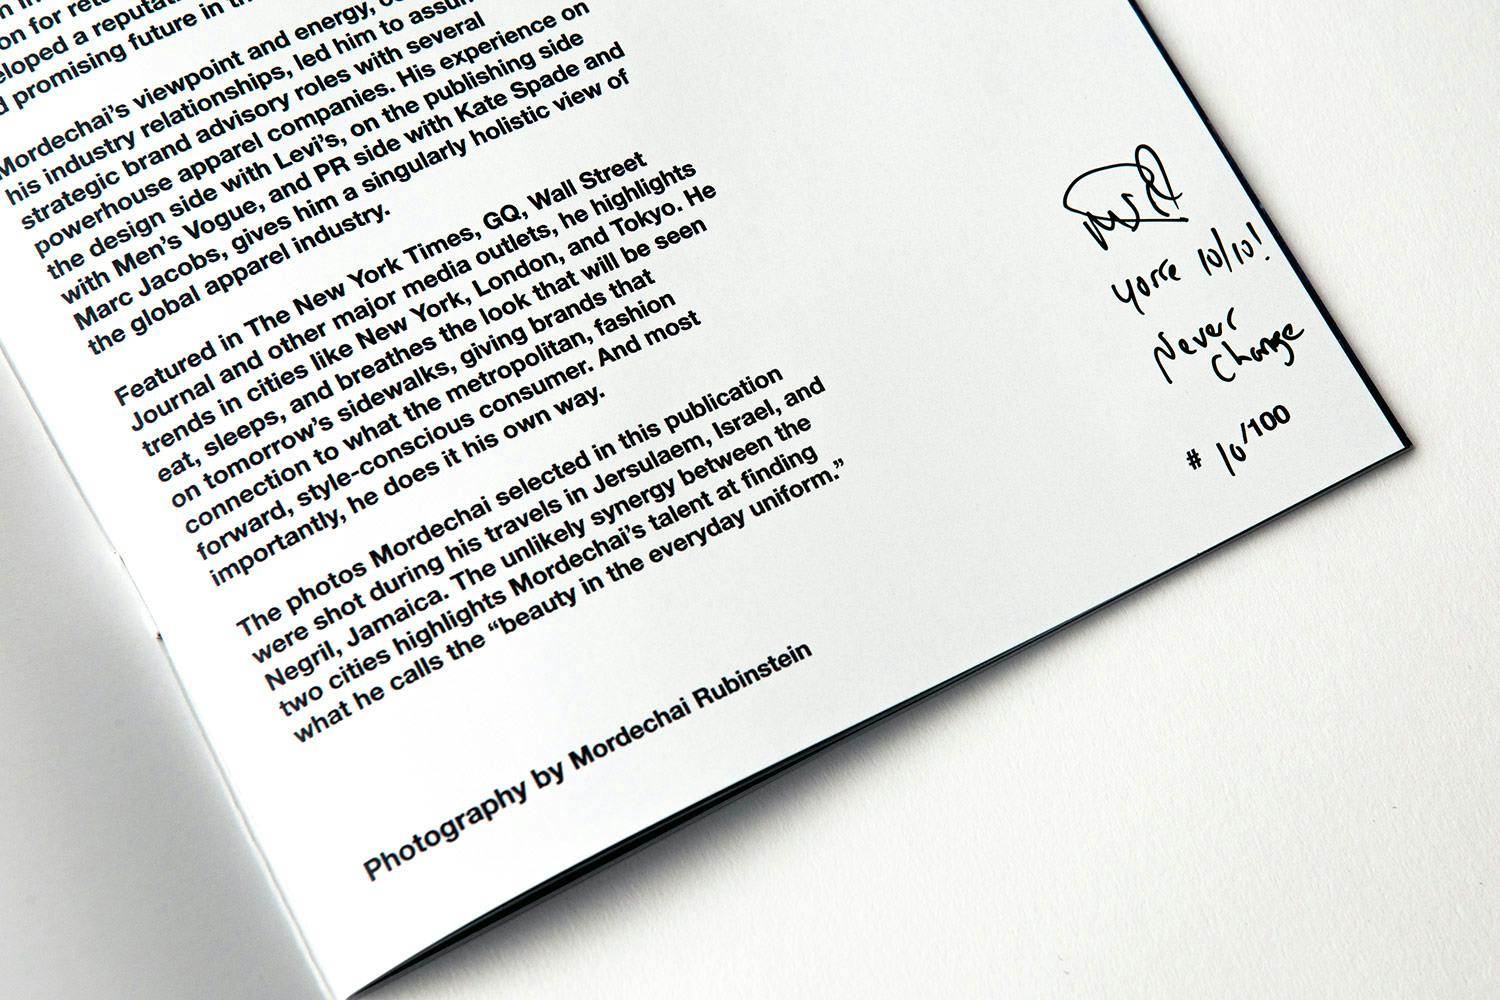 on for
eloped a
d promising future in
Mordechai's viewpoint and energy,
his industry relationships, led him to
strategic brand advisory roles with several
powerhouse apparel companies. His experience on
the design side with Levi's, on the publishing side
with Men's Vogue, and PR side with Kate Spade and
Marc Jacobs, gives him a singularly holistic view of
the global apparel industry.
Featured in The New York Times, GQ, Wall Street
Journal and other major media outlets, he highlights
trends in cities like New York, London, and Tokyo. He
eat, sleeps, and breathes the look that will be seen
on tomorrow's sidewalks, giving brands that
connection to what the metropolitan, fashion
forward, style-conscious consumer. And most
importantly, he does it his own way.
The photos Mordechai selected in this publication
were shot during his travels in Jersulaem, Israel, and
Negril, Jamaica. The unlikely synergy between the
two cities highlights Mordechai's talent at finding
what he calls the “beauty in the everyday uniform.”
Photography by Mordechai Rubinstein
10/10!
Never
Change
# 10/100